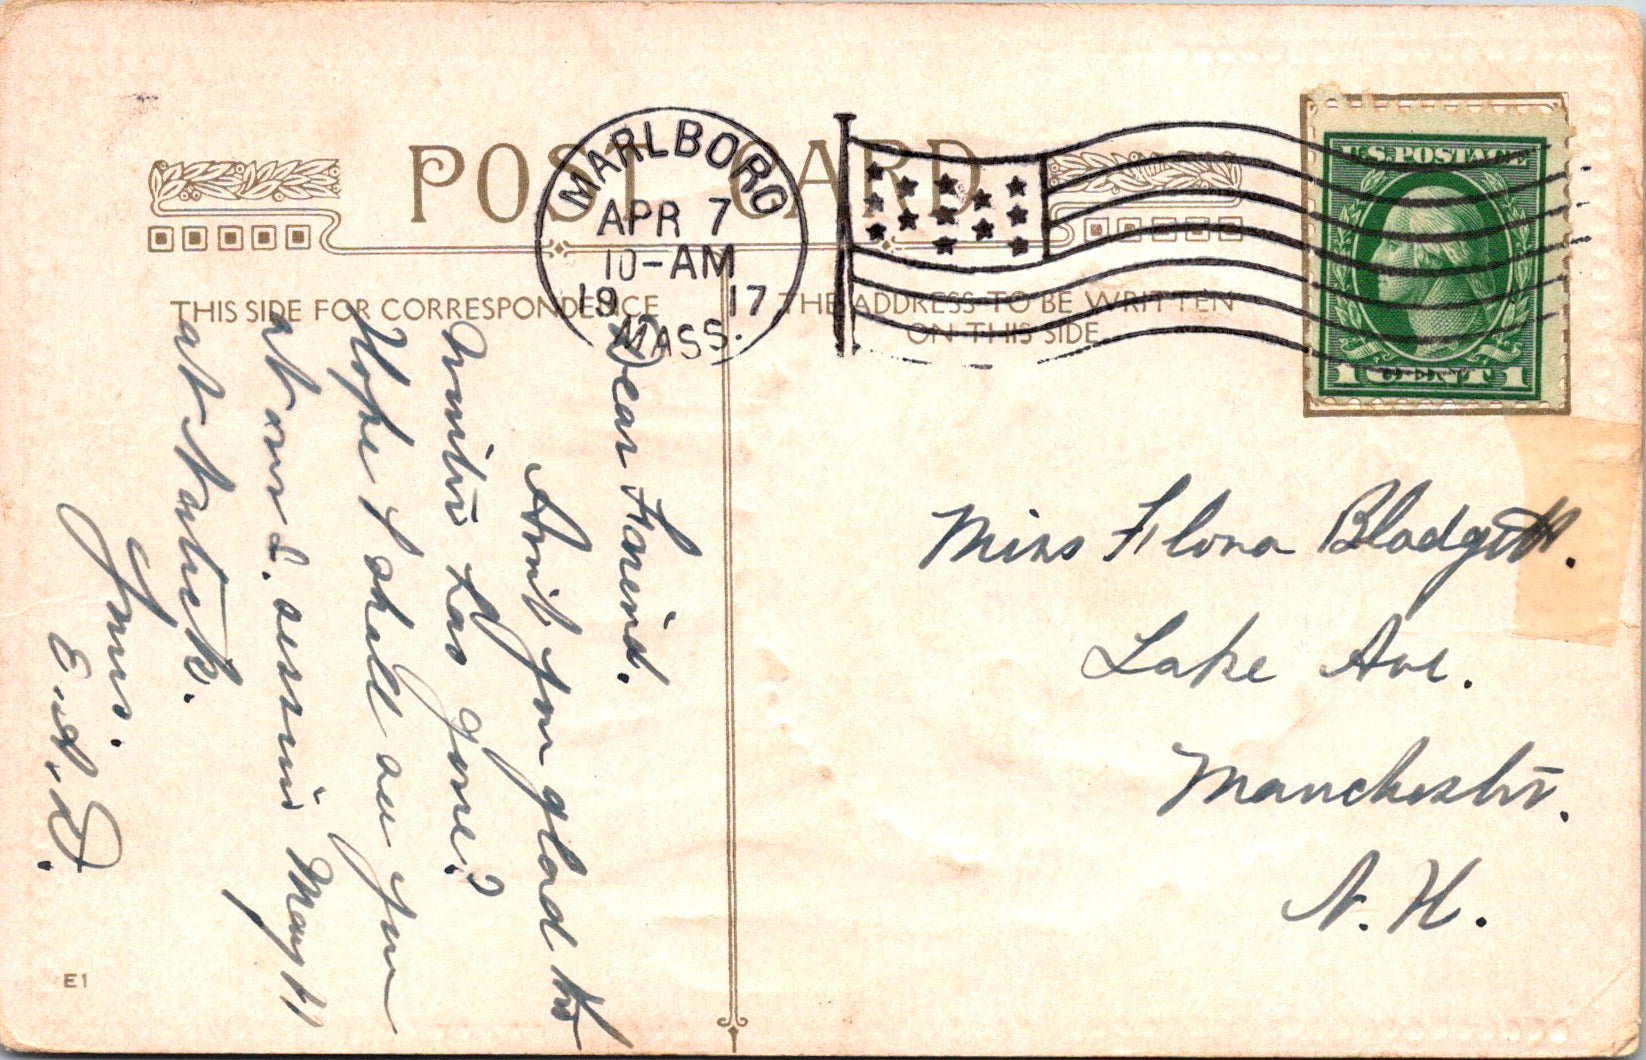 POST CARD
MARLBORO
APR 7
10-AM
19 17
MASS.
U.S. POSTAGE
1 CENT 1
THIS SIDE FOR CORRESPONDENCE
THE ADDRESS TO BE WRITTEN
ON THIS SIDE
Dear Fareind.
Arn't you glad the
winter has gone?
Hope I shall see you
at our D. session May 11
at Natick.
Yours.
E.A.D.
Miss Flora Blodgett.
Lake Ave.
Manchester.
N. H.
E1